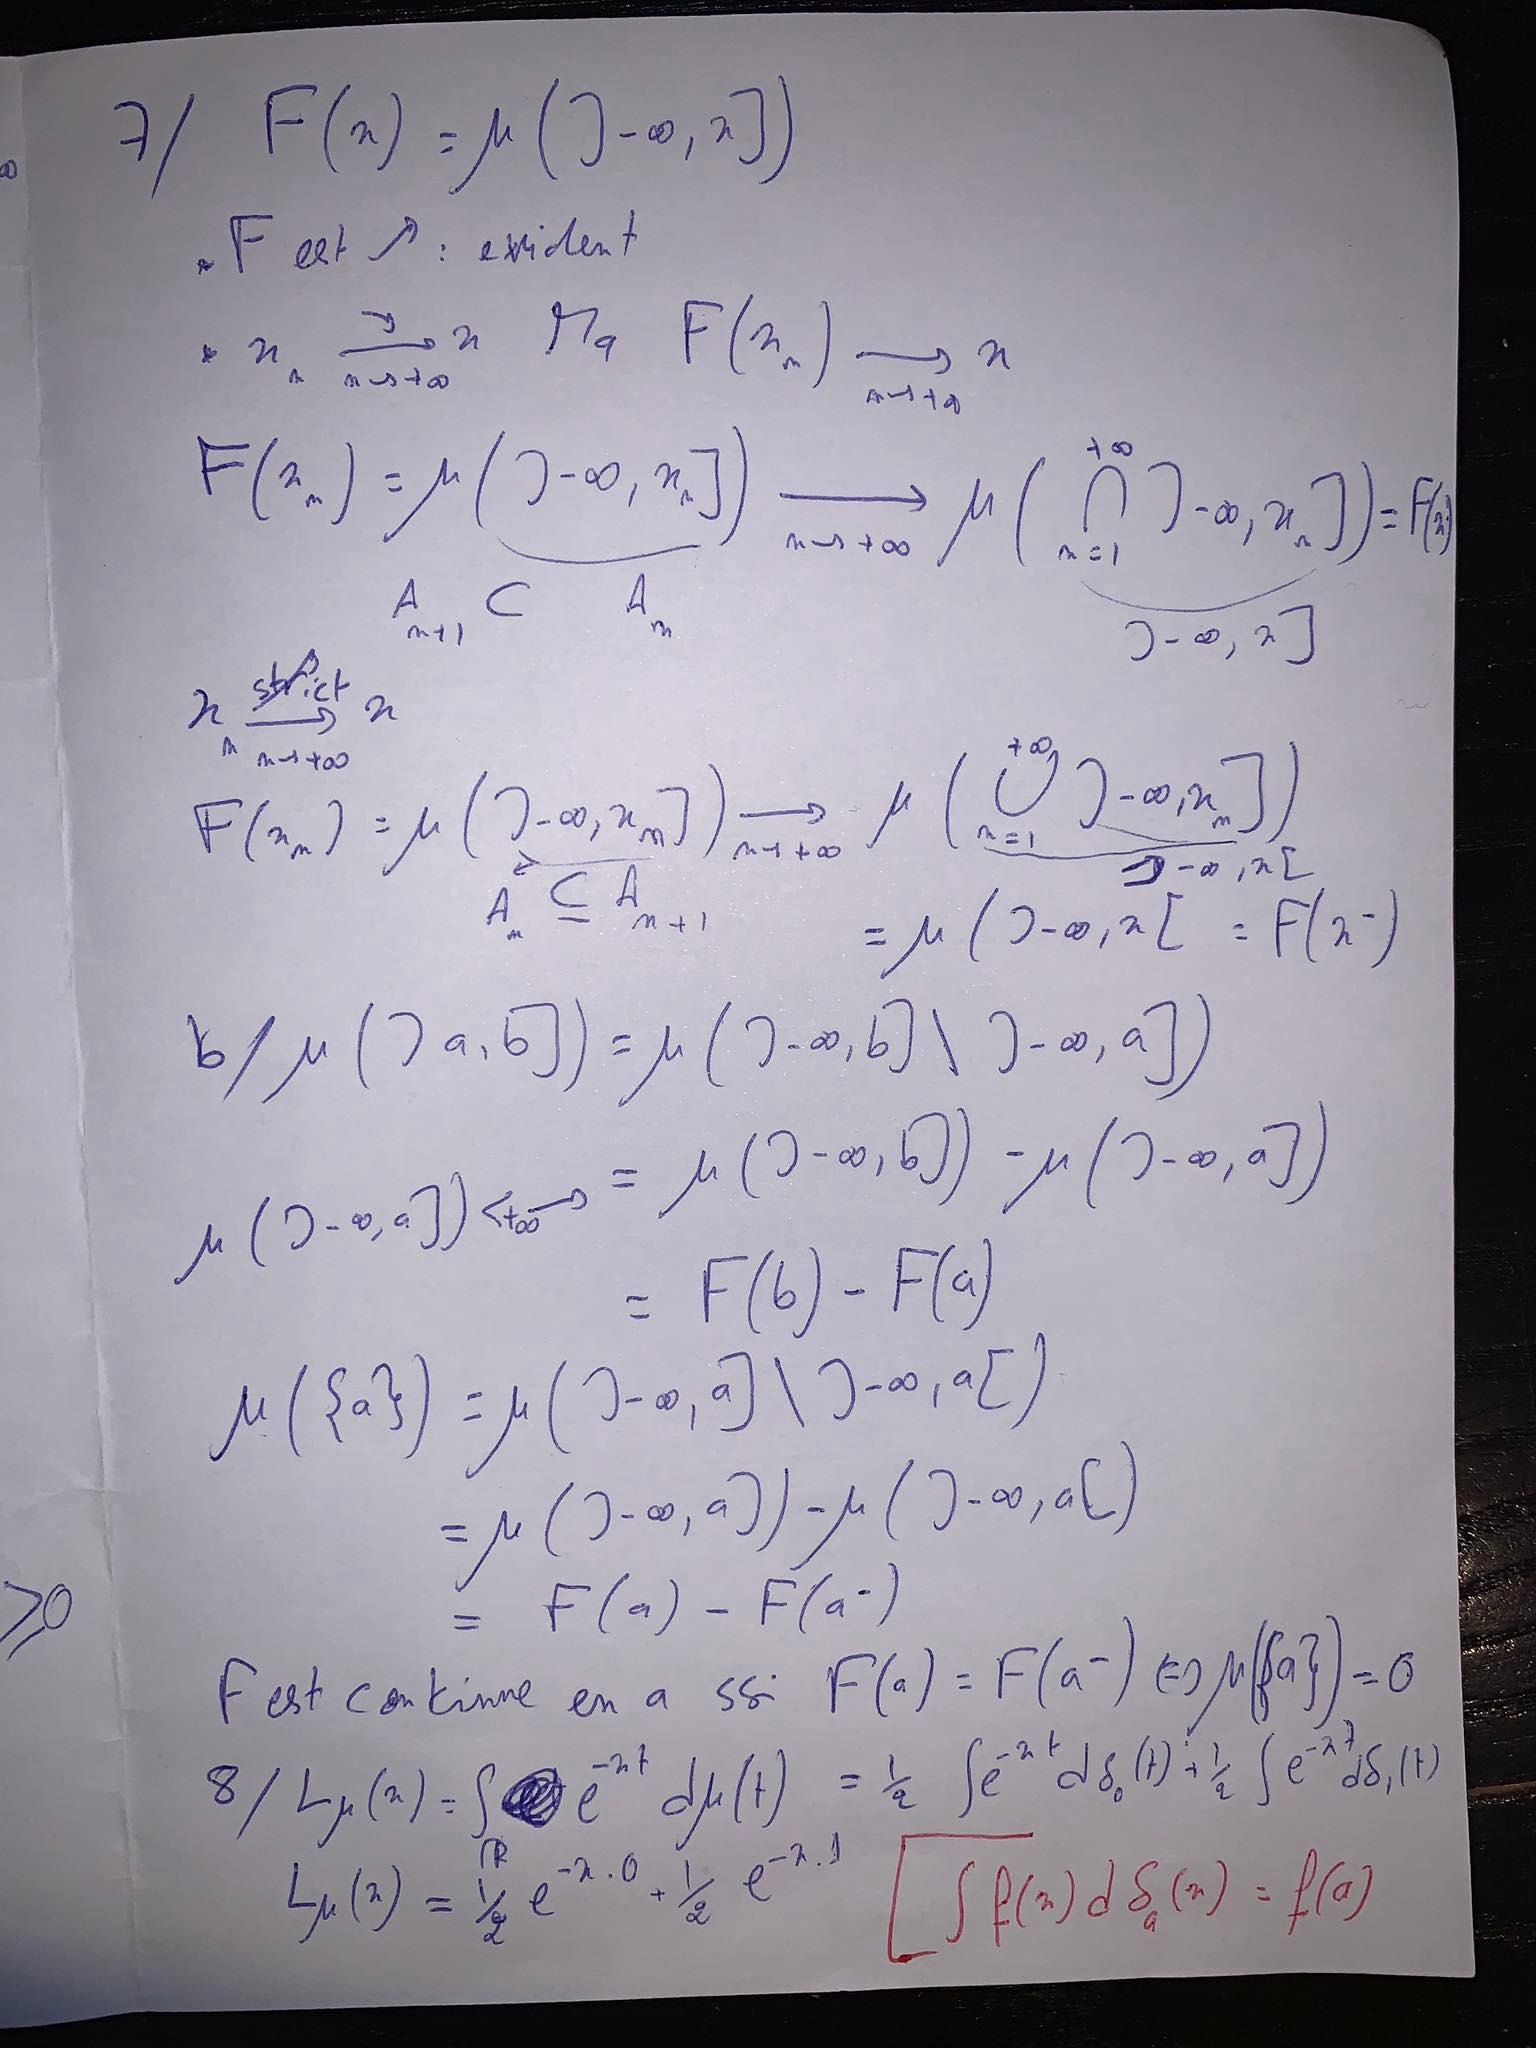 ∞
7/ F(x) = μ(]-∞, x])
• F est ↗ : evident
• x_n ↘⟶_{n→+∞} x Mq F(x_n) ⟶_{n→+∞} x
F(x_n) = μ(]-∞, x_n]) ⟶_{n→+∞} μ(⋂_{n=1}^{+∞} ]-∞, x_n]) = F(x)
A_{n+1} ⊂ A_n ]-∞, x]
x_n ⟶^{strict ↗}_{n→+∞} x
F(x_n) = μ(]-∞, x_n]) ⟶_{n→+∞} μ(⋃_{n=1}^{+∞} ]-∞, x_n])
A_n ⊆ A_{n+1} ]-∞, x[
= μ(]-∞, x[ = F(x⁻)
b/ μ(]a, b]) = μ(]-∞, b] \ ]-∞, a])
= μ(]-∞, b]) - μ(]-∞, a])
μ(]-∞, a]) < +∞ ⟶
= F(b) - F(a)
μ({a}) = μ(]-∞, a] \ ]-∞, a[)
= μ(]-∞, a]) - μ(]-∞, a[)
≥0
= F(a) - F(a⁻)
F est continue en a ssi F(a) = F(a⁻) ⇔ μ({a}) = 0
8/ L_μ(x) = ∫_ℝ e^{-xt} dμ(t) = 1/2 ∫ e^{-xt} dδ_0(t) + 1/2 ∫ e^{-xt} dδ_1(t)
L_μ(x) = 1/2 e^{-x.0} + 1/2 e^{-x.1} [ ∫ f(x) dδ_a(x) = f(a)